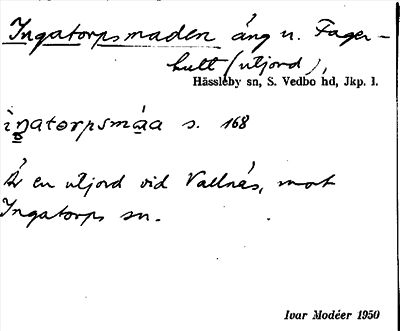 Ingatorpsmaden äng u. Fager-
hult (utjord),
Hässleby sn, S. Vedbo hd, Jkp. l.
iŋatorpsmáa s. 168
Är en utjord vid Vallnäs, mot
Ingatorps sn.
Ivar Modéer 1950